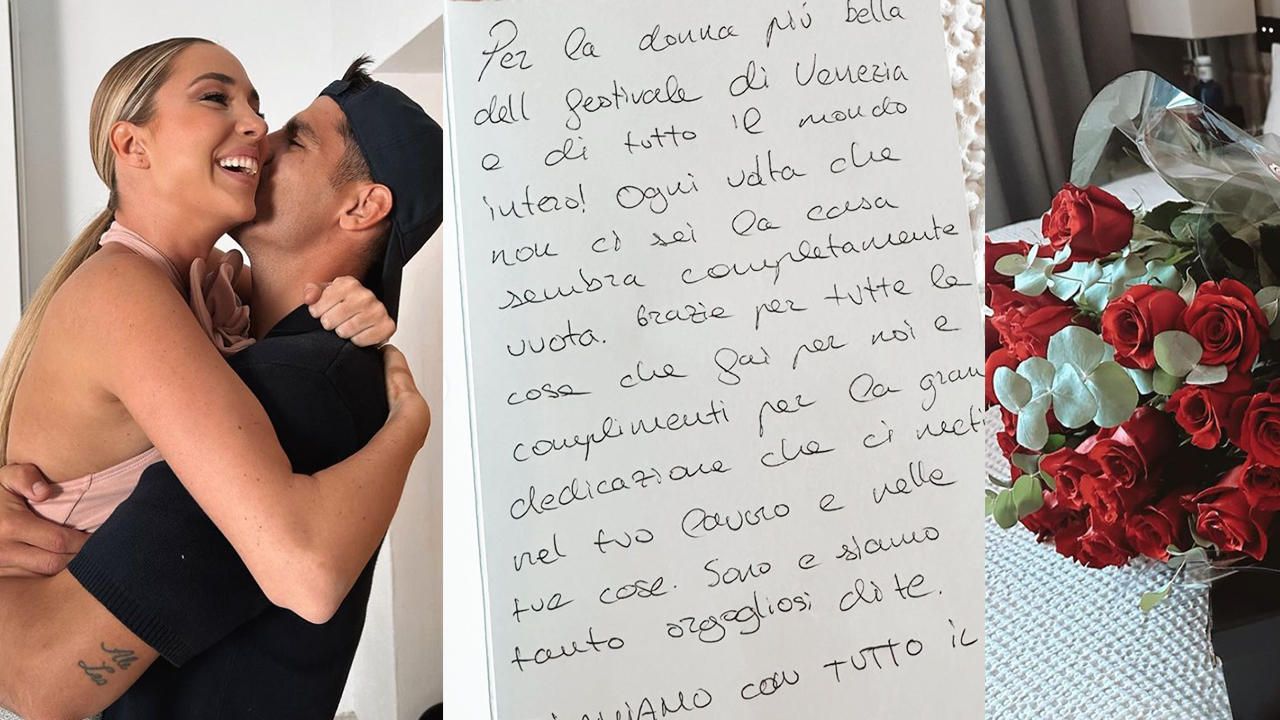 Ale
Leo
Per la donna più bella
dell festivale di Venezia
e di tutto il mondo
intero! Ogni volta che
non ci sei la casa
sembra completamente
vuota. Grazie per tutte le
cose che fai per noi e
complimenti per la gran
dedicazione che ci metti
nel tuo lavoro e nelle
tue cose. Sono e siamo
tanto orgogliosi di te.
CON TUTTO IL